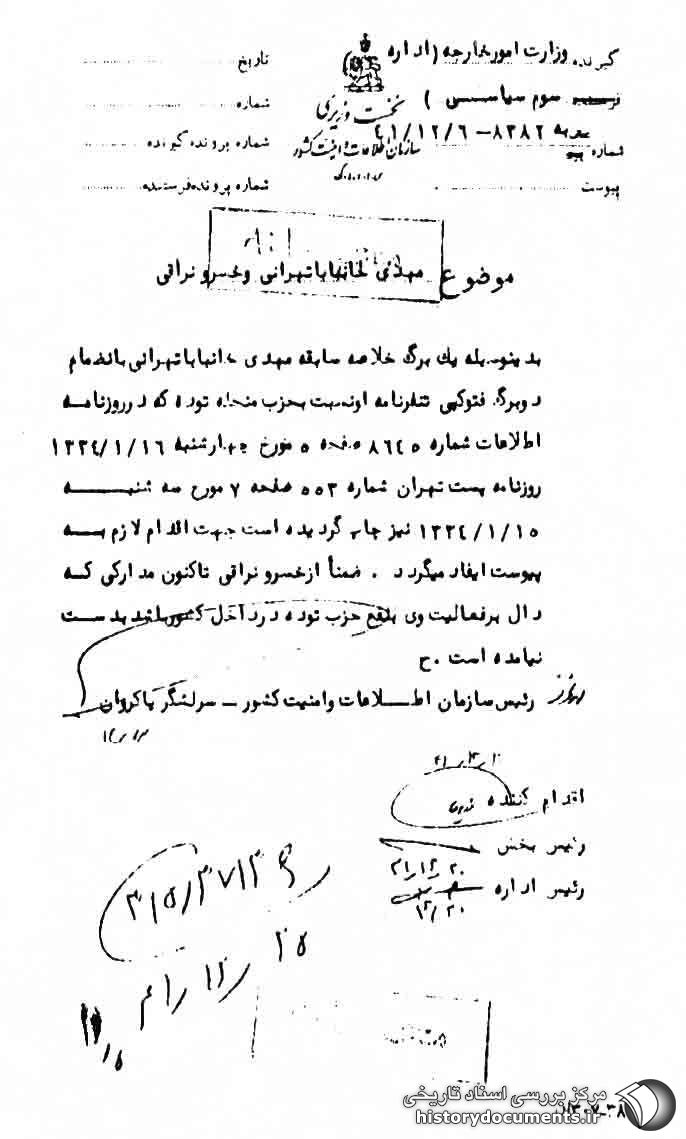 گیرنده وزارت امورخارجه (اداره
سوم سیاسی)
شماره ۸۳۸۲-۴۱/۱۲/۶
پیوست
نخست وزیری
سازمان اطلاعات و امنیت کشور
تاریخ
شماره
شماره پرونده گیرنده
شماره پرونده فرستنده
موضوع مهدی خانباباتهرانی وخسرو نراقی
بدینوسیله یک برگ خلاصه سابقه مهدی خانباباتهرانی بانضمام
دوبرگ فتوکپی تنفرنامه اونسبت بحزب منحله توده که درروزنامه
اطلاعات شماره ۸۶۴۵ صفحه ۵ مورخ چهارشنبه ۱۳۳۴/۱/۱۶
روزنامه پست تهران شماره ۵۵۳ صفحه ۷ مورخ سه شنبه
۱۳۳۴/۱/۱۵ نیز چاپ گردیده است جهت اقدام لازم به
پیوست ایفاد میگردد . ضمناً ازخسرو نراقی تاکنون مدارکی که
دال برفعالیت وی بنفع حزب توده درداخل کشورباشد بدست
نیامده است .ح
رئیس سازمان اطلاعات وامنیت کشور - سرلشگر پاکروان
اقدام کننده
رئیس بخش
۴۱/۱۲/۲۰
رئیس اداره
۱۲/۲۰
۴۱/۱۲/۲۵
مرکز بررسی اسناد تاریخی
historydocuments.ir